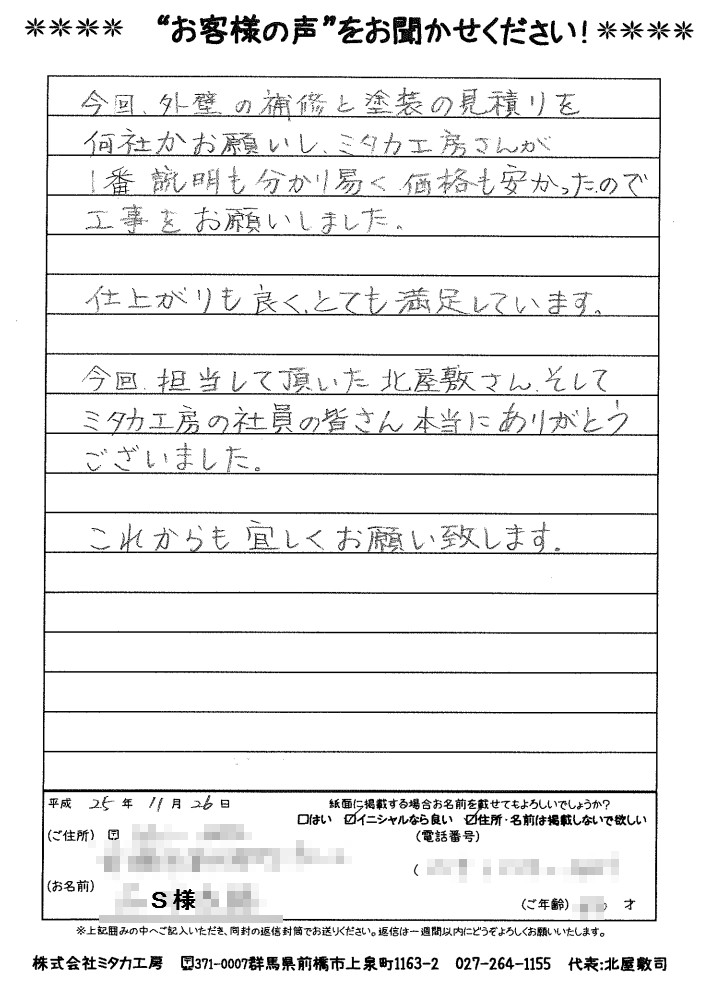 **** “お客様の声”をお聞かせください！ ****
今回、外壁の補修と塗装の見積りを
何社かお願いし、ミタカ工房さんが
1番 説明も分かり易く 価格も安かったので
工事をお願いしました。
仕上がりも良く、とても満足しています。
今回、担当して頂いた北屋敷さん、そして
ミタカ工房の社員の皆さん本当にありがとう
ございました。
これからも宜しくお願い致します。
平成 25 年 11 月 26 日
紙面に掲載する場合お名前を載せてもよろしいでしょうか？
□はい ☑イニシャルなら良い ☑住所・名前は掲載しないで欲しい
(ご住所) 〒
(電話番号)
(
(お名前)
S様
(ご年齢) 才
※上記囲みの中へご記入いただき、同封の返信封筒でお送りください。返信は一週間以内にどうぞよろしくお願いいたします。
株式会社ミタカ工房 〒371-0007群馬県前橋市上泉町1163-2 027-264-1155 代表:北屋敷司